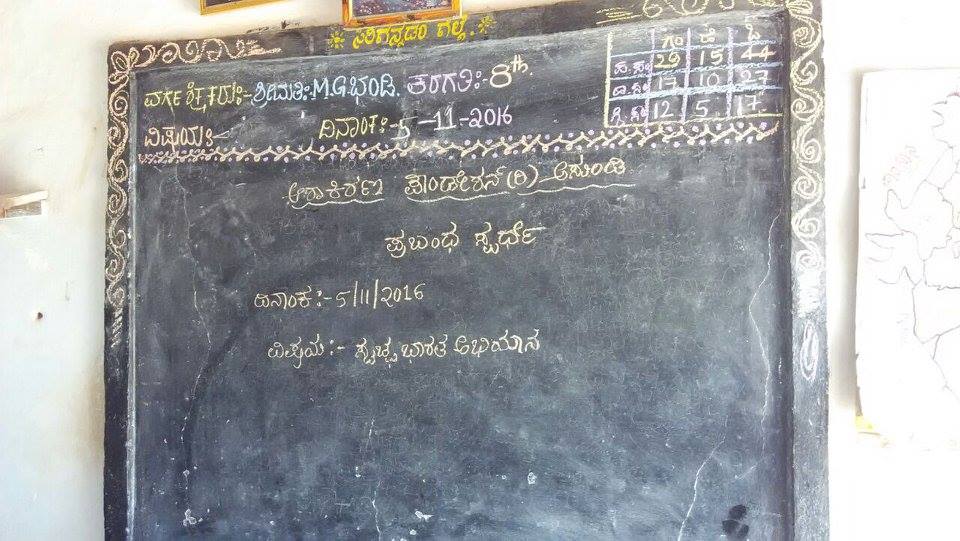 ಸಿರಿಗನ್ನಡಂ ಗೆಲ್ಗೆ.
ವರ್ಗ ಶಿಕ್ಷಕರು:- ಶ್ರೀಮತಿ:- M.G.ಭಂಡಿ. ತರಗತಿ:- 8th.
ವಿಷಯ:- ದಿನಾಂಕ:- 5-11-2016
ಗಂ ಹೆ ಒ
ಹ.ಸಂ 29 15 44
ದಾ.ಸಂ 17 10 27
ಗೈ.ಸಂ 12 5 17
ಆಶಾಕಿರಣ ಫೌಂಡೇಶನ್ (ರಿ) ಆಸುಂಡಿ
ಪ್ರಬಂಧ ಸ್ಪರ್ಧೆ
ದಿನಾಂಕ:- 5/11/2016
ವಿಷಯ:- ಸ್ವಚ್ಛ ಭಾರತ ಅಭಿಯಾನ